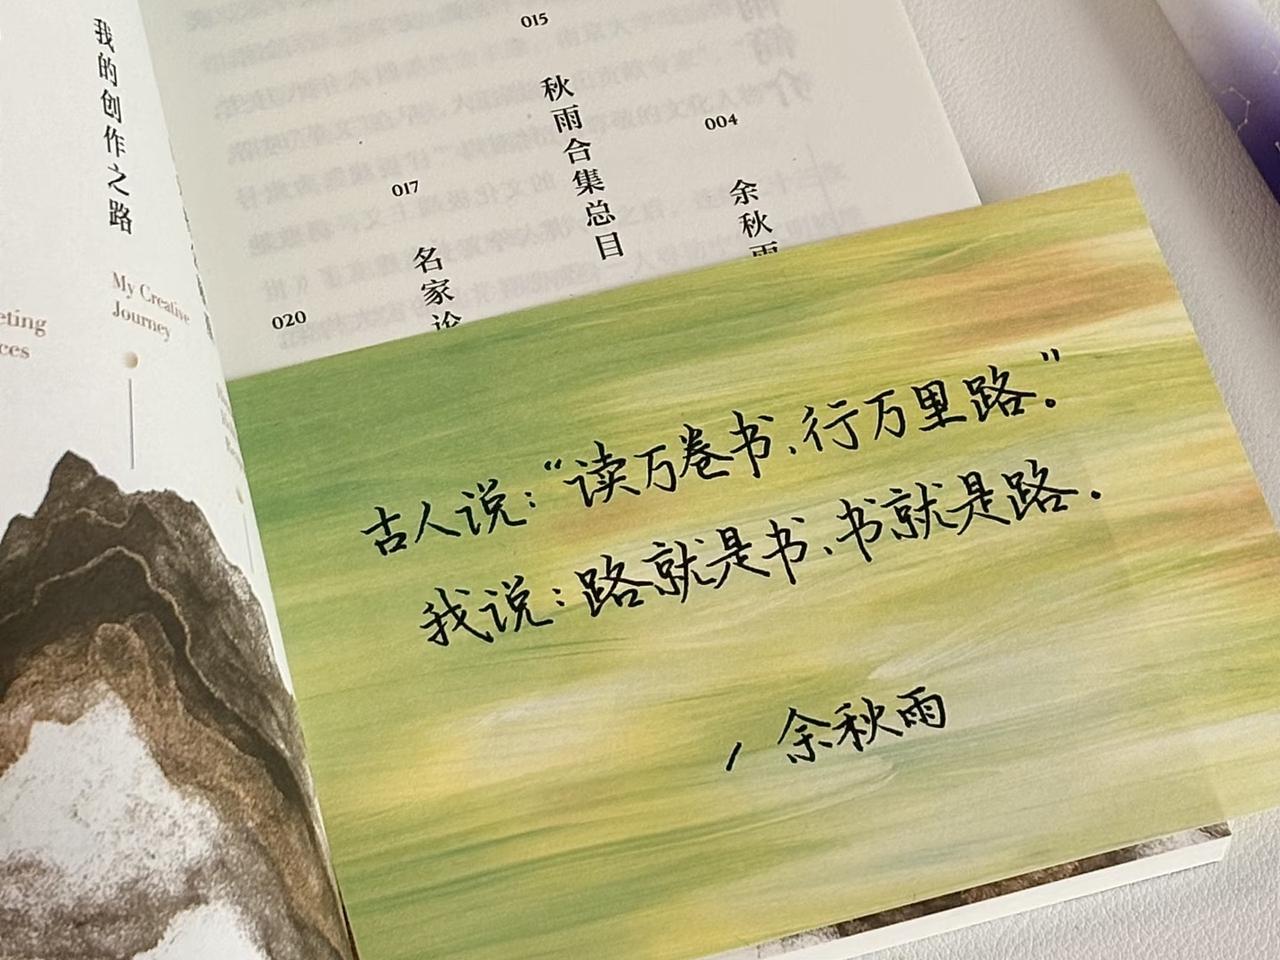 我的创作之路
My Creative
Journey
eting
ces
015
秋雨合集总目
004
余秋雨
017
名家论
020
古人说：“读万卷书、行万里路。”
我说：路就是书、书就是路.
/ 余秋雨